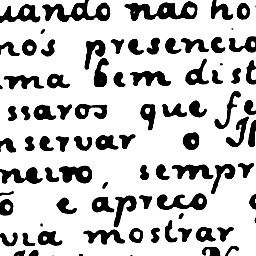 uando não ho
nós presencio
uma bem dist
ssaros que fe
nservar o Il
neiro, sempr
ão e apreço
uvia mostrar